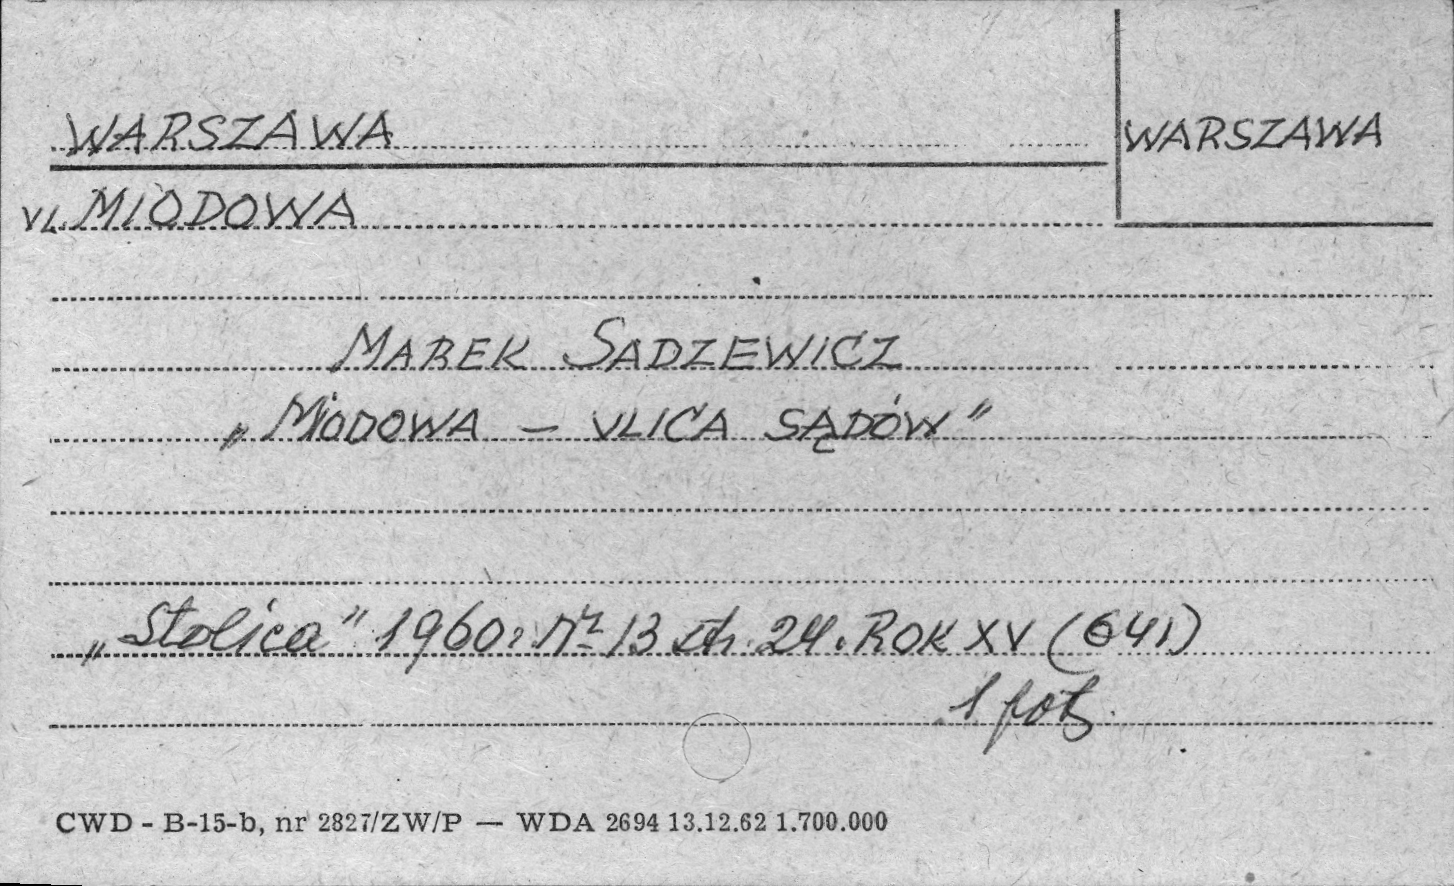 WARSZAWA
WARSZAWA
UL. MIODOWA
MAREK SADZEWICZ
„MIODOWA – ULICA SĄDÓW”
„Stolica” 1960 r. nr 13 str. 24. ROK XV (641)
1 fot.
CWD - B-15-b, nr 2827/ZW/P — WDA 2694 13.12.62 1.700.000